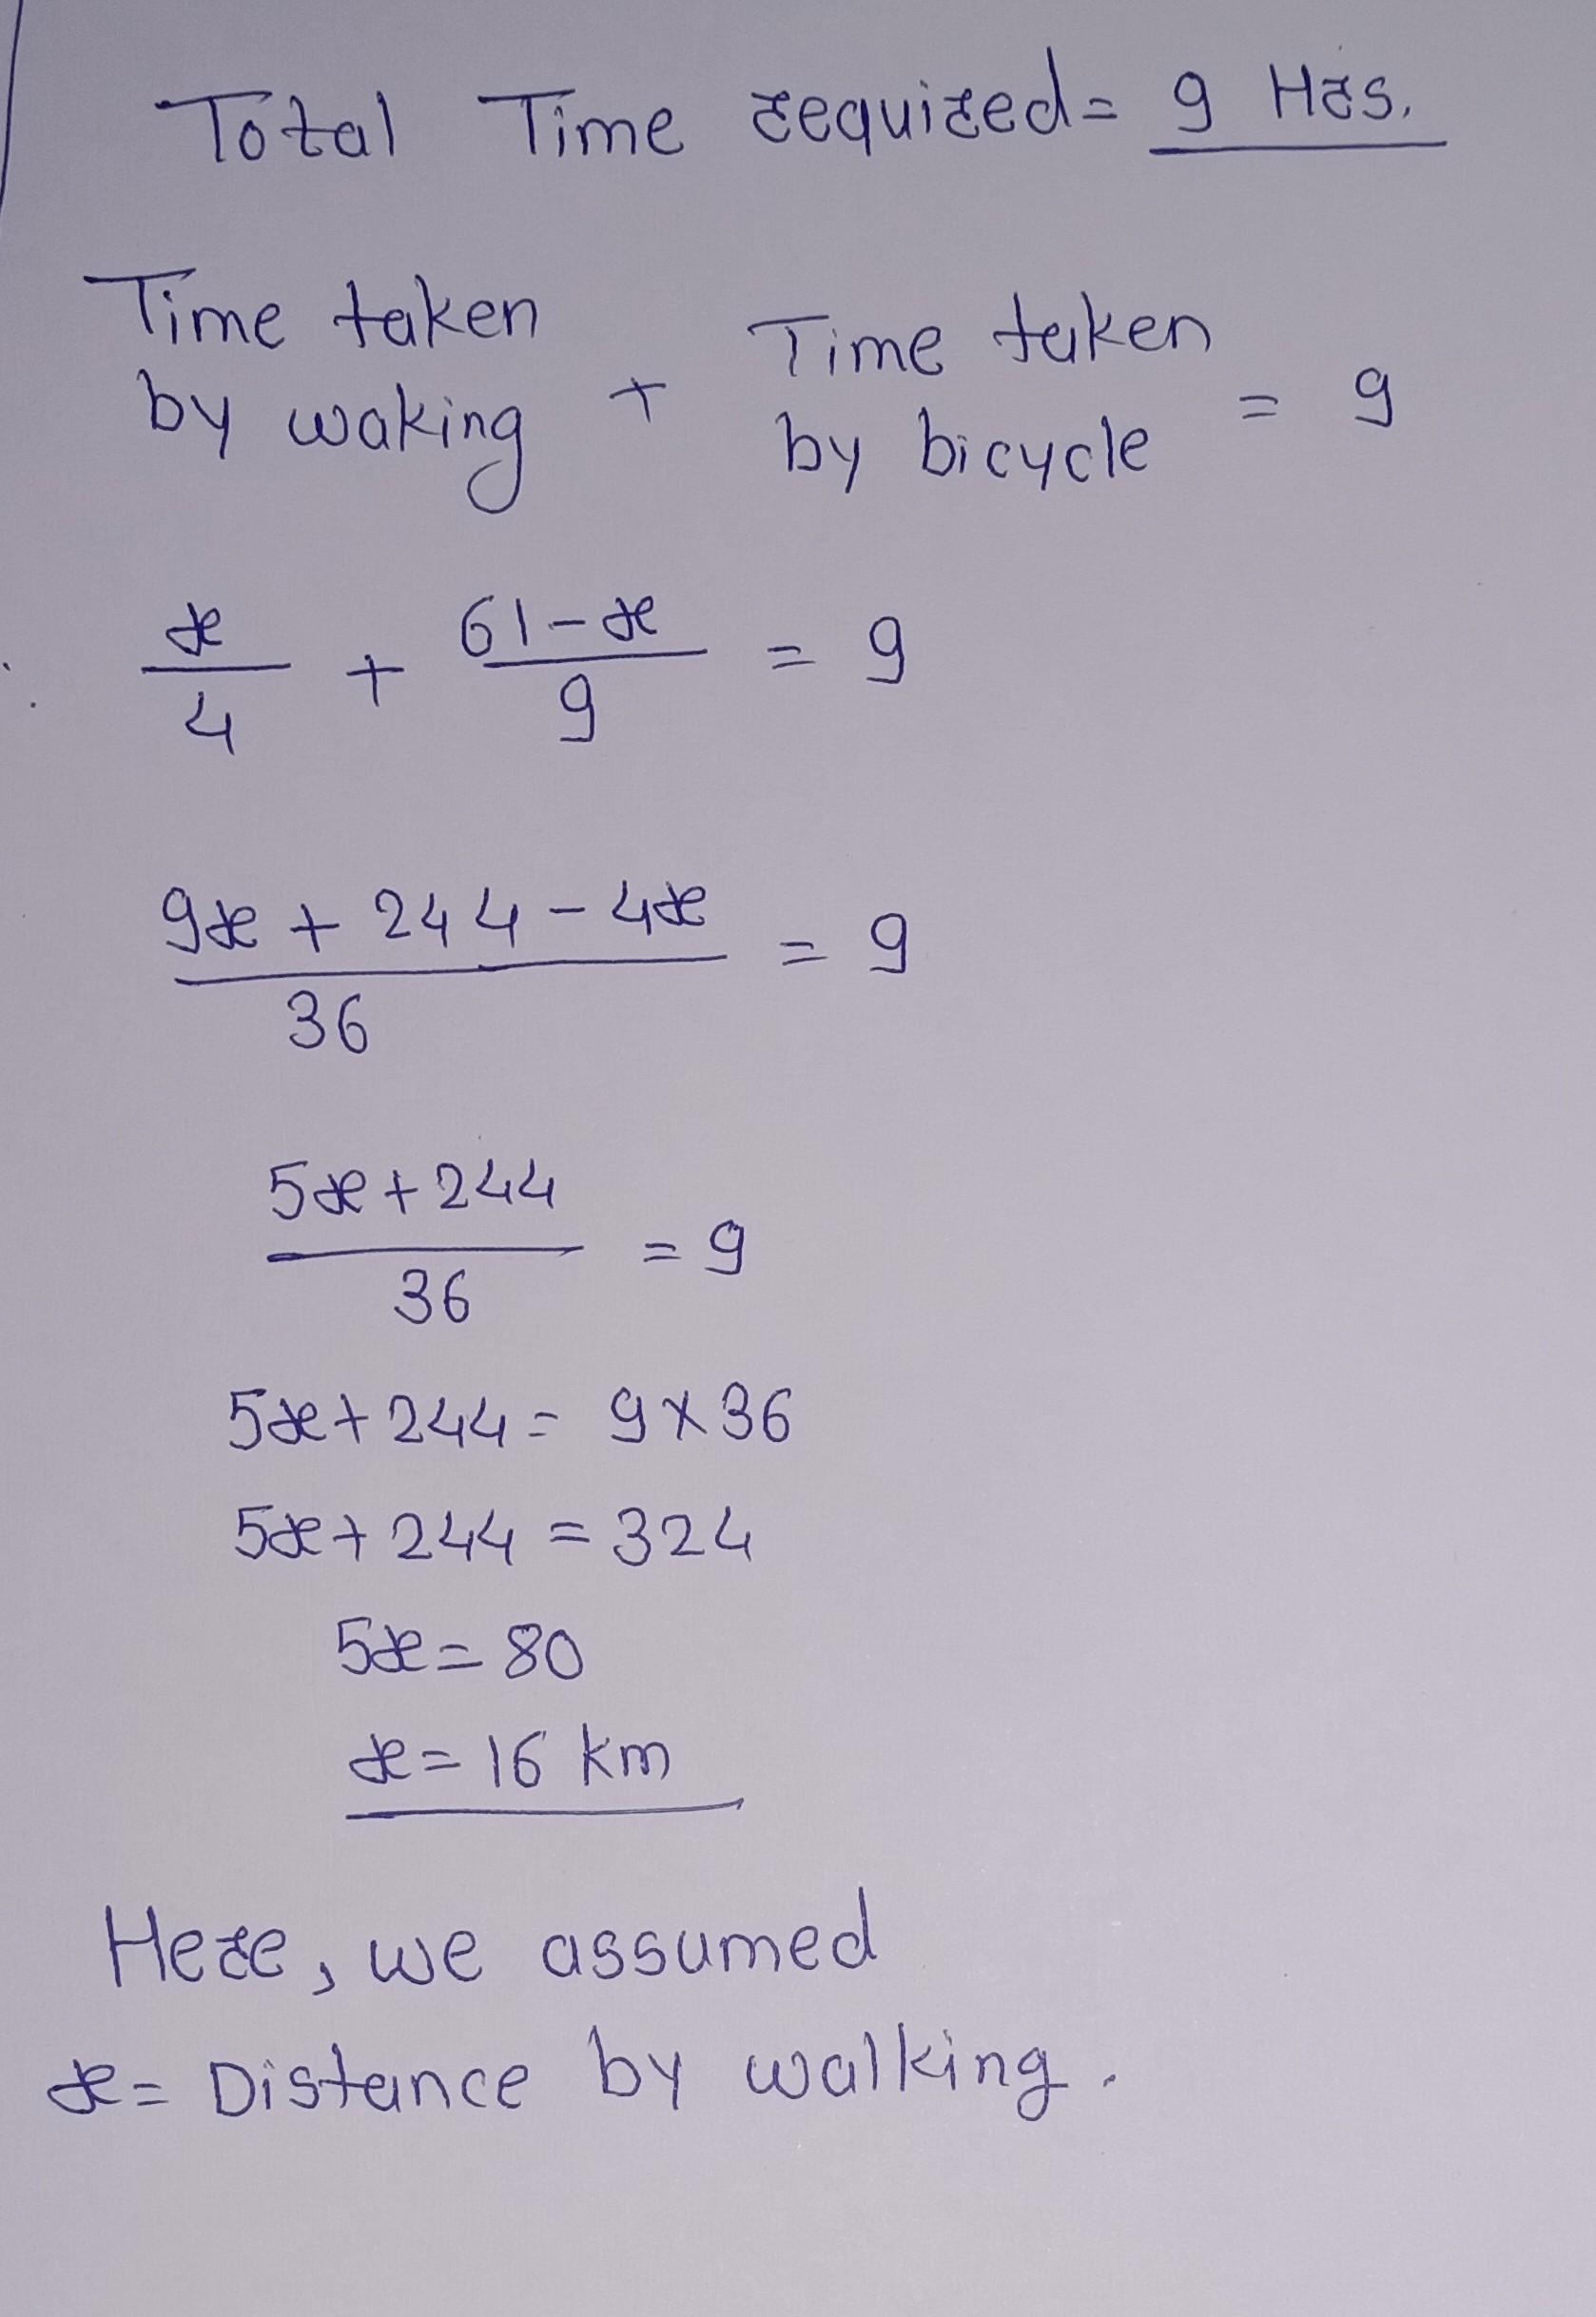 Total Time required = 9 Hrs.
Time taken by waking + Time taken by bicycle = 9
x/4 + 61-x/9 = 9
9x + 244 - 4x / 36 = 9
5x + 244 / 36 = 9
5x + 244 = 9 x 36
5x + 244 = 324
5x = 80
x = 16 km
Here, we assumed
x = Distance by walking.